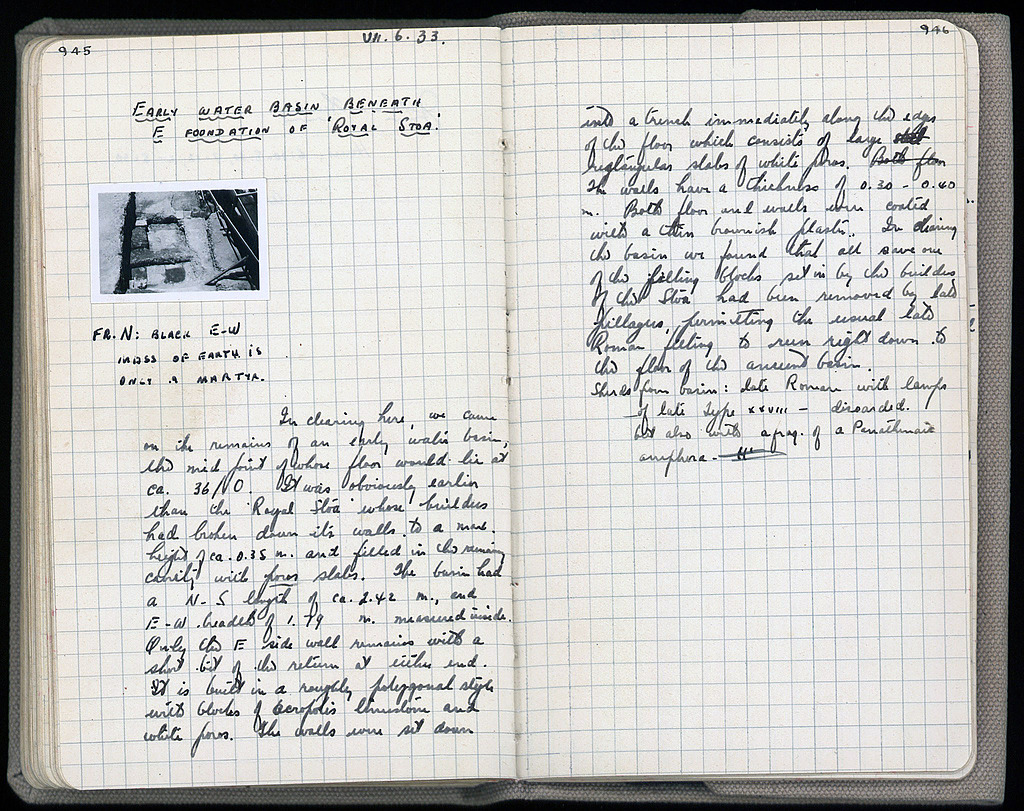 945
VII. 6. 33.
EARLY WATER BASIN BENEATH
E FOUNDATION OF 'ROYAL STOA'.
FR. N: BLACK E-W
MASS OF EARTH IS
ONLY A MARTYR.
In clearing here, we came
on the remains of an early water basin,
the mid point of whose floor would lie at
ca. 36/Ο. It was obviously earlier
than the 'Royal Stoa' whose builders
had broken down its walls to a max.
height of ca. 0.35 m. and filled in the remaining
cavity with poros slabs. The basin had
a N-S length of ca. 2.42 m., and
E-W breadth of 1.79 m. measured inside.
Only the E side wall remains with a
short bit of the return at either end.
It is built in a roughly polygonal style
with blocks of Acropolis limestone and
white poros. The walls were set down
946
into a trench immediately along the edge
of the floor which consists of large
rectangular slabs of white poros. Both floor
The walls have a thickness of 0.30 - 0.40
m. Both floor and walls were coated
with a thin brownish plaster. In clearing
the basin we found that all save one
of the filling blocks set in by the builders
of the Stoa had been removed by late
pillagers, permitting the usual late
Roman filling to run right down to
the floor of the ancient basin.
Sherds from basin: late Roman with lamps
of late Type XXVIII - discarded.
but also with a frag. of a Panathenaic
amphora -